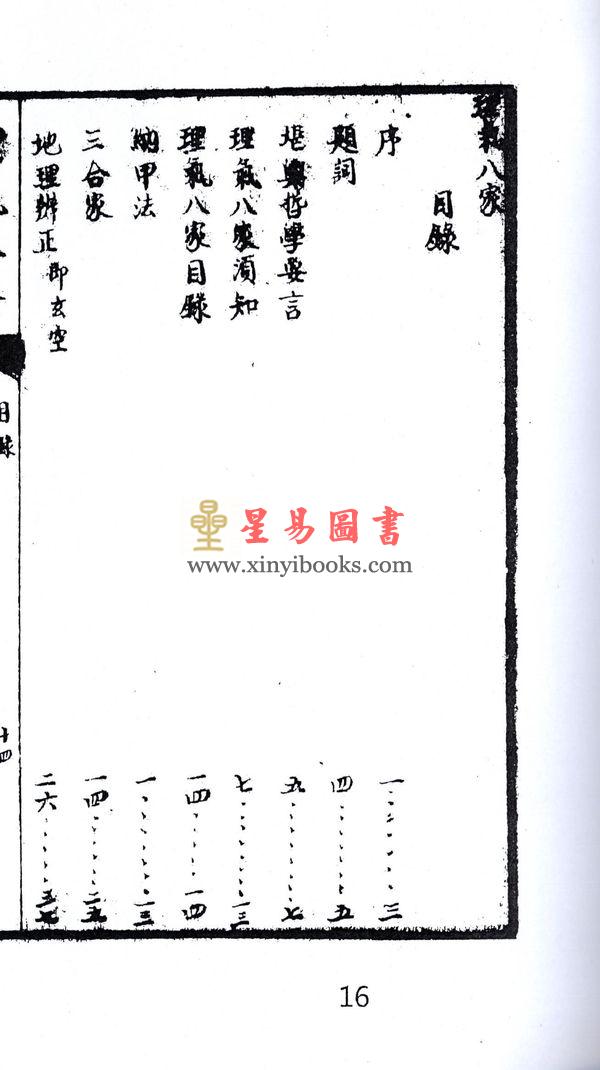 理氣八家
目錄
序 一……三
題詞 四……五
堪輿哲學要言 五……七
理氣八家須知 七……一三
理氣八家目錄 一四……一四
納甲法 一……一三
三合家 一四……二五
地理辨正 即玄空 二六……五七
目錄
十四
星易圖書
www.xinyibooks.com
16